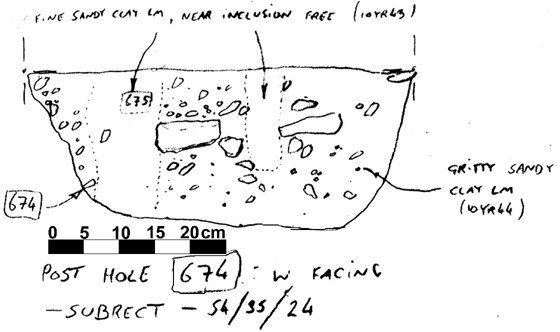 FINE SANDY CLAY LM, NEAR INCLUSION FREE (10YR43)
675
GRITTY SANDY
CLAY LM
(10YR44)
674
0 5 10 15 20cm
POST HOLE 674 : W FACING
- SUBRECT - 54/35/24